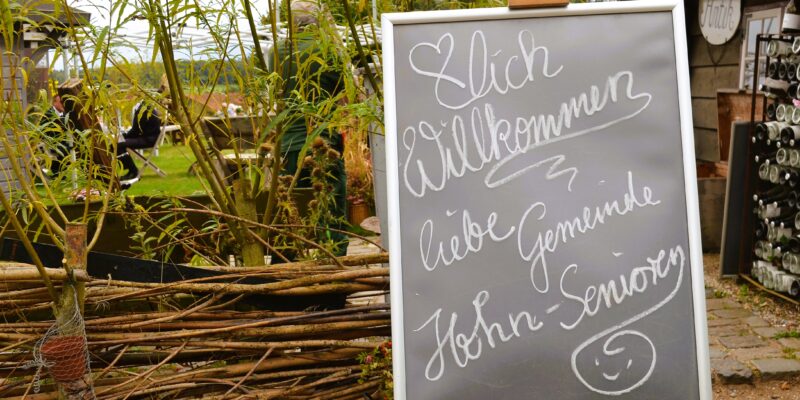 ♡lich
Willkommen
liebe Gemeinde
Hohn-Senioren